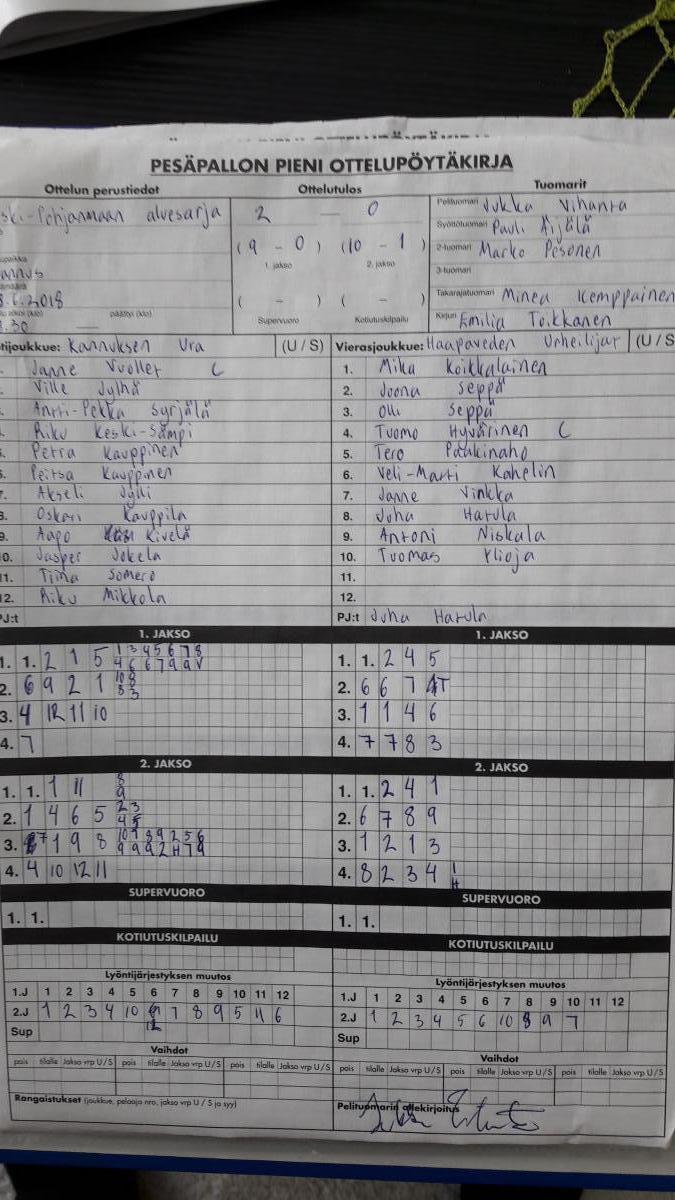 PESÄPALLON PIENI OTTELUPÖYTÄKIRJA
Ottelun perustiedot Ottelutulos Tuomarit
ski-Pohjanmaan aluesarja 2 — 0 Pelituomari Jukka Vihanta
Syöttötuomari Pauli Äijälä
(9 - 0) (10 - 1) 2-tuomari Marko Pesonen
1. jakso 2. jakso 3-tuomari
annus
8.6.2018 ( - ) ( - ) Takarajatuomari Minea Kemppainen
.30 — päättyi (klo) Supervuoro Kotiutuskilpailu Kirjuri Emilia Toikkanen
tijoukkue: Kannuksen Ura (U / S) Vierasjoukkue: Haapaveden Urheilijat (U / S
Janne Vuollet C 1. Mika Koikkalainen
Ville Jylhä 2. Joona Seppä
Antti-Pekka Syrjälä 3. Olli Seppä
Riku Keski-Sämpi 4. Tuomo Hyvärinen C
Petra Kauppinen 5. Tero Paakinaho
Peitsa Kauppinen 6. Veli-Matti Kahelin
7. Akseli Jylli 7. Janne Vinkka
8. Oskari Kauppila 8. Juha Harula
9. Aapo Kivelä 9. Antoni Niskala
10. Jasper Jokela 10. Tuomas Ylioja
11. Tiina Somero 11.
12. Riku Mikkola 12.
PJ:t PJ:t Juha Harula
1. JAKSO 1. JAKSO
1. 1. 2 1 5 1 3 4 5 6 7 8 1. 1. 2 4 5
4 6 6 7 9 9 V
2. 6 9 2 1 10 8 2. 6 6 7 4T
8 3
3. 4 12 11 10 3. 1 1 4 6
4. 7 4. 7 7 8 3
2. JAKSO 2. JAKSO
1. 1. 1 11 8 1. 1. 2 4 1
9
2. 1 4 6 5 2 3 2. 6 7 8 9
4 5
3. 7 1 9 8 10 1 8 9 2 5 6 3. 1 2 1 3
9 9 9 2 H 7 9
4. 4 10 12 11 4. 8 2 3 4 1
H
SUPERVUORO SUPERVUORO
1. 1. 1. 1.
KOTIUTUSKILPAILU KOTIUTUSKILPAILU
Lyöntijärjestyksen muutos Lyöntijärjestyksen muutos
1.J 1 2 3 4 5 6 7 8 9 10 11 12 1.J 1 2 3 4 5 6 7 8 9 10 11 12
2.J 1 2 3 4 10 7 8 9 5 11 6 2.J 1 2 3 4 5 6 10 8 9 7
12
Sup Sup
Vaihdot Vaihdot
pois tilalle Jakso vrp U / S pois tilalle Jakso vrp U / S pois tilalle Jakso vrp U / S pois tilalle Jakso vrp U / S pois tilalle Jakso vrp U / S pois tilalle Jakso vrp U / S
Rangaistukset (joukkue, pelaaja nro, jakso vrp U / S ja syy) Pelituomarin allekirjoitus